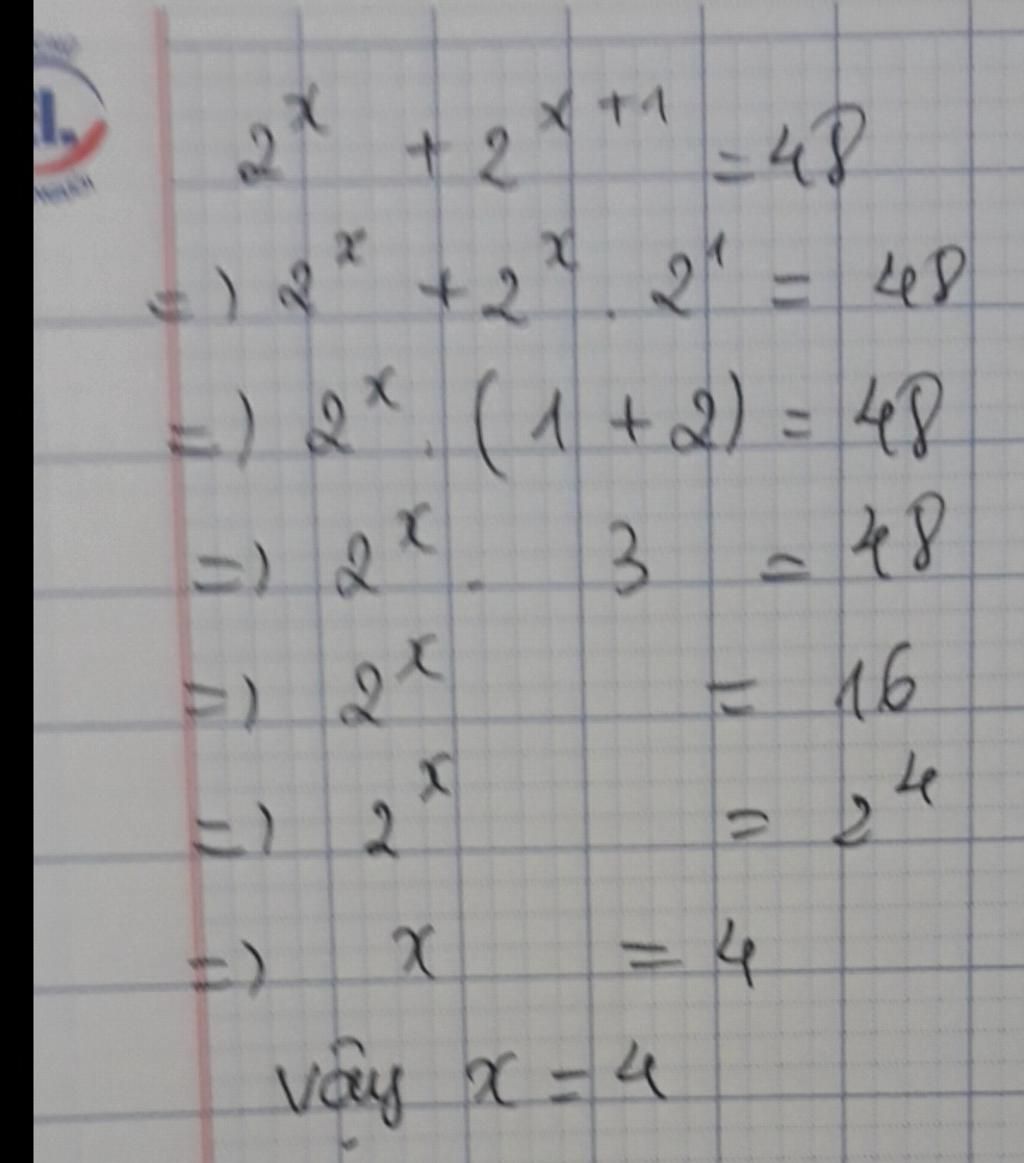 2^x + 2^{x+1} = 48
=) 2^x + 2^x . 2^1 = 48
=) 2^x . (1 + 2) = 48
=) 2^x . 3 = 48
=) 2^x = 16
=) 2^x = 2^4
=) x = 4
Vậy x = 4